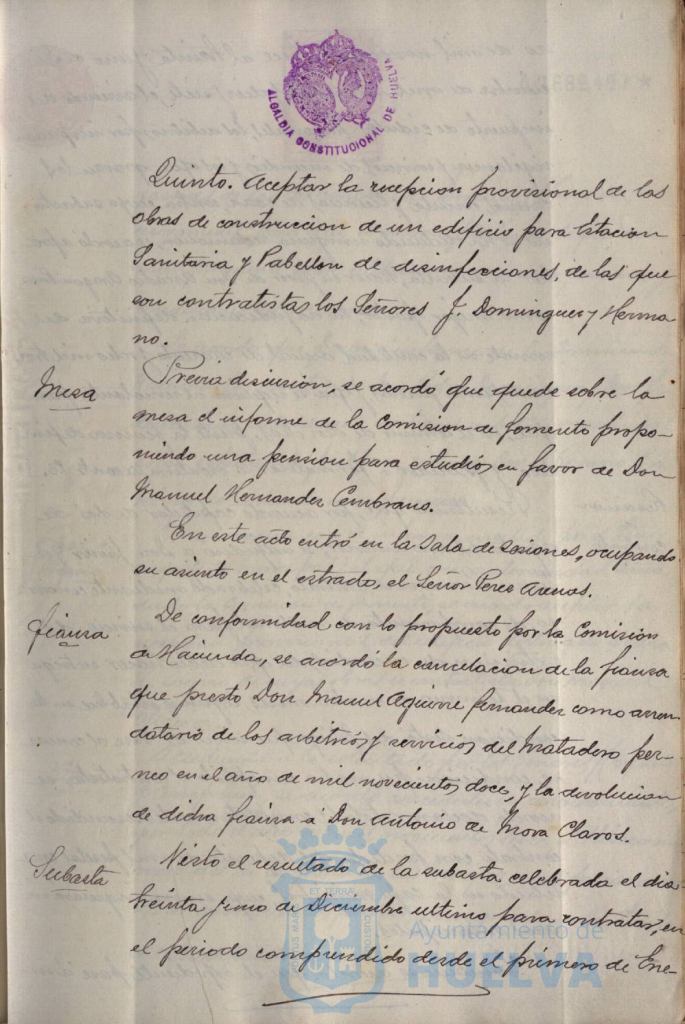 ALCALDIA CONSTITUCIONAL DE HUELVA
Quinto. Aceptar la recepcion provisional de las
obras de construccion de un edificio para Estacion
Sanitaria y Pabellon de desinfecciones, de las que
son contratistas los Señores J. Dominguez y Herma
no.
Mesa
Previa discusion, se acordó que quede sobre la
mesa el informe de la Comision de fomento propo-
niendo una pension para estudios en favor de Don
Manuel Hernandez Cembrano.
En este acto entró en la Sala de Sesiones, ocupando
su asiento en el estrado, el Señor Perez Arenas.
fianza
De conformidad con lo propuesto por la Comision
de Hacienda, se acordó la cancelacion de la fianza
que prestó Don Manuel Aguirre Fernandez como arren
datario de los arbitrios y servicios del Matadero per-
neo en el año de mil novecientos doce, y la devolucion
de dicha fianza á Don Antonio de Mora Claros.
Subasta
Visto el resultado de la subasta celebrada el dia
treinta y uno de Diciembre ultimo para contratar, en
el periodo comprendido desde el primero de Ene-
Ayuntamiento de
HUELVA